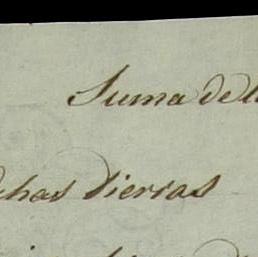 Suma de l
chas Tierras